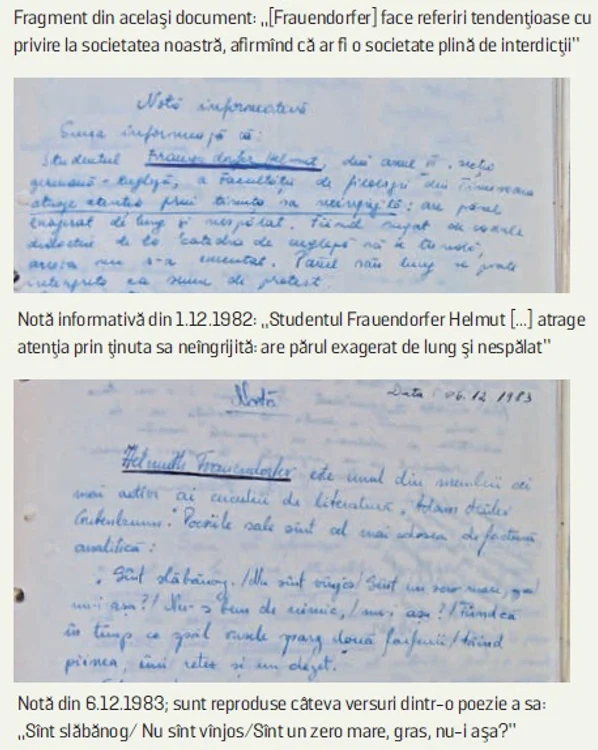 Fragment din acelaşi document: „[Frauendorfer] face referiri tendenţioase cu
privire la societatea noastră, afirmînd că ar fi o societate plină de interdicţii"
Notă informativă
Sursa informează că:
Studentul Frauendorfer Helmut, din anul II, secţia
germană - engleză, a Facultăţii de filologie din Timişoara
atrage atenţia prin ţinuta sa neîngrijită: are părul
exagerat de lung şi nespălat. Fiind rugat de cadrele
didactice de la catedra de engleză să se tundă,
acesta nu s-a executat. Părul său lung se poate
interpreta ca semn de protest.
Notă informativă din 1.12.1982: „Studentul Frauendorfer Helmut [...] atrage
atenţia prin ţinuta sa neîngrijită: are părul exagerat de lung şi nespălat"
Notă Data: 06.12.1983
Helmuth Frauendorfer este unul din membrii cei
mai activi ai cercului de literatură „Adam Müller
Guttenbrunn". Poeziile sale sînt cel mai adesea de factură
analitică:
„Sînt slăbănog./Nu sînt vînjos/Sînt un zero mare, gras
nu-i aşa?/ Nu-s bun de nimic,/nu-i aşa?/Fiindcă
în timp ce spăl vasele sparg două farfurii/tăind
pîinea, îmi retez şi un deget."
Notă din 6.12.1983; sunt reproduse câteva versuri dintr-o poezie a sa:
„Sînt slăbănog/ Nu sînt vînjos/Sînt un zero mare, gras, nu-i aşa?"